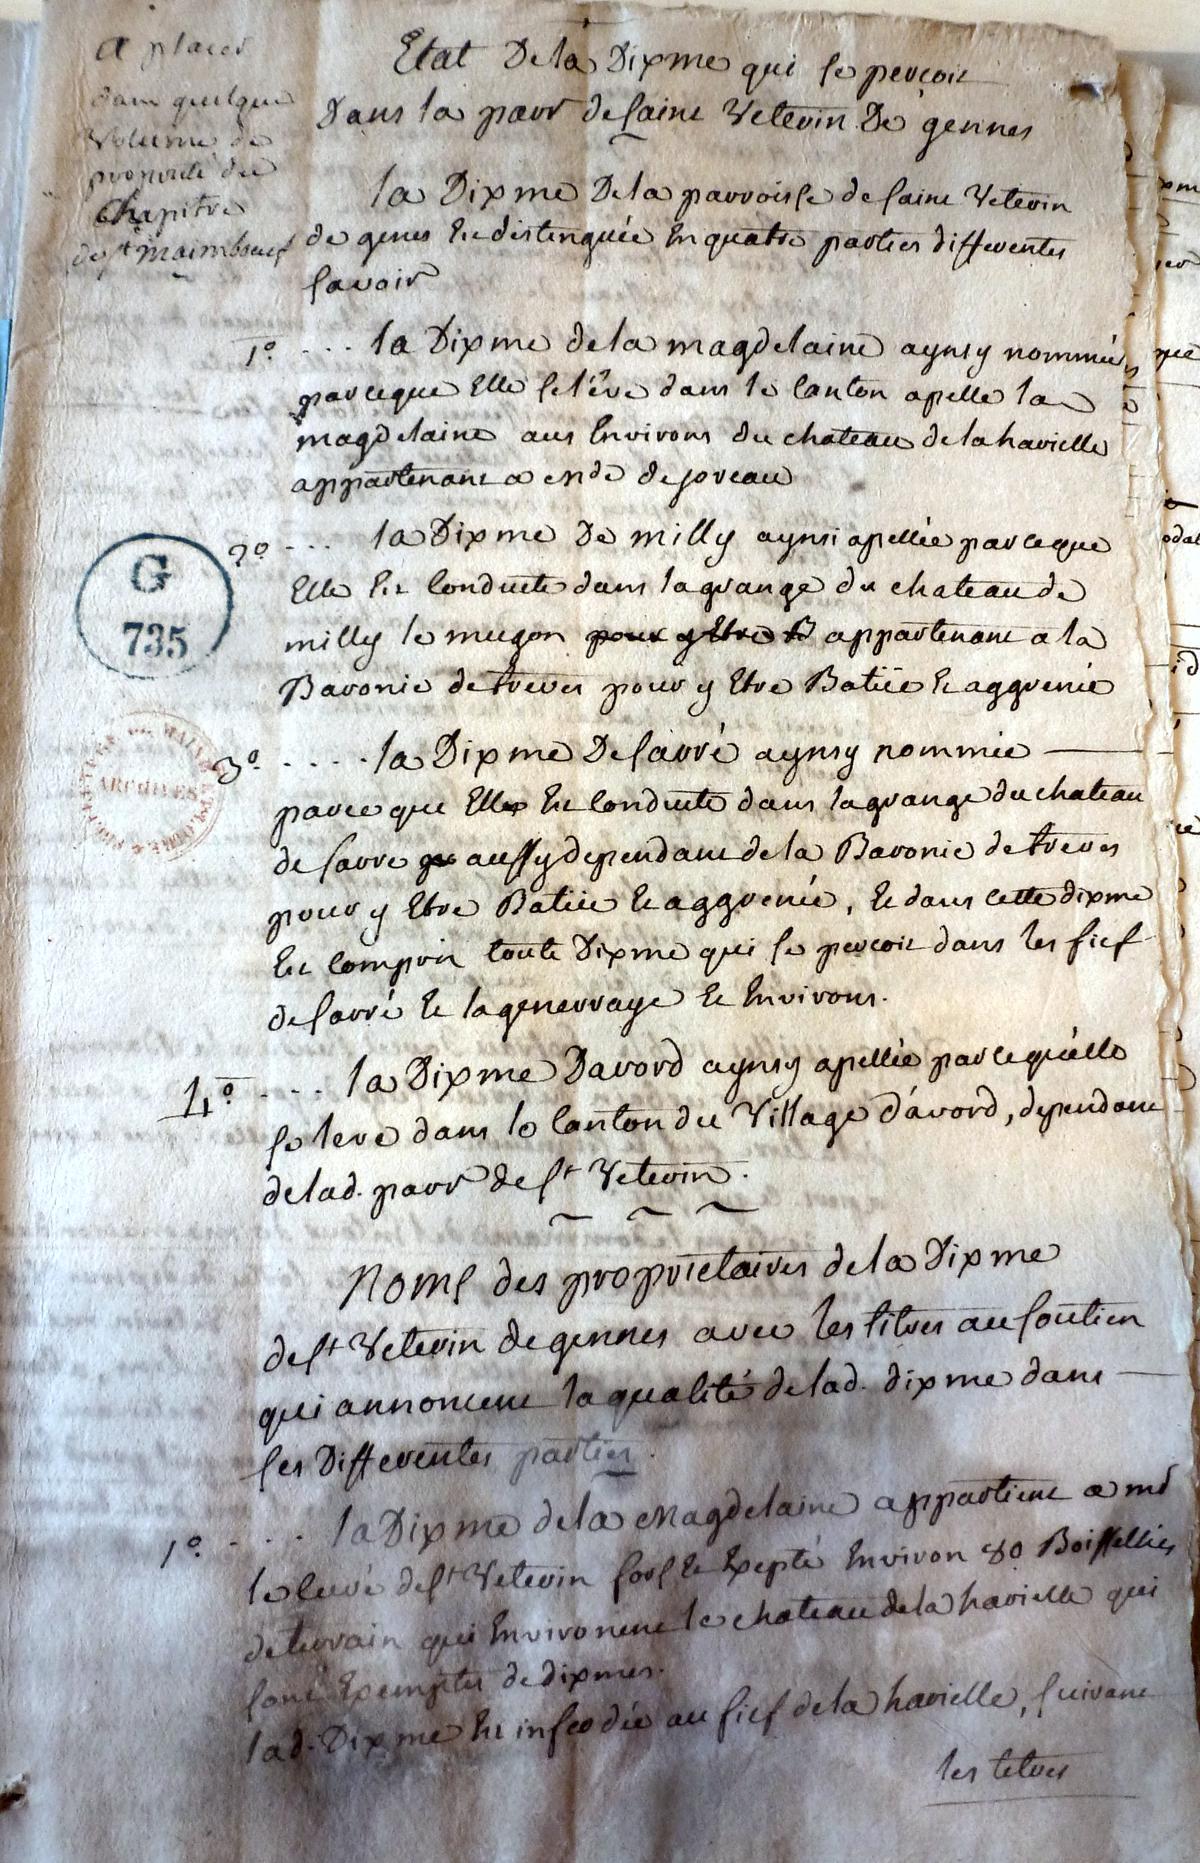 a placer
dans quelque
volume de
propriete du
Chapitre
de st maimboeuf
Etat De la Dixme qui se perçoit
Dans la parr de saint Veterin De gennes
la Dixme De la parroisse de saint Veterin
de genes Est distinguée En quatre parties differentes
savoir
1º. ... la Dixme de la magdelaine aynsy nommée
parceque Elle se lêve dans le canton apelle la
magdelaine aus Environs du chateau de la harielle
appartenant a mde de joreau
2º ... la Dixme De milly aynsi apellée parceque
Elle Est Conduite dans la grange du chateau de
milly le mugon pour y Etre B appartenant a la
Baronie de treves pour y Etre Batüe Et aggrenée
3º. .... la Dixme De sarré aynsy nommée
parce que Elle Est Conduite dans la grange du chateau
de sarre aussy dependant de la Baronie de treves
pour y Etre Batüe Et aggrenée, Et dans cette dixme
Est Compris toute Dixme qui se perçoit dans les fief
de sarré Et la generraye Et Environs.
4º. ... la Dixme Davord aynsy apellée parcequ'elle
se leve dans le Canton du Village d'avord, dependant
de lad. parr de st Veterin.
Noms des proprietaires de la Dixme
de st Veterin de gennes avec les titres au soutien
qui annoncent la qualité de lad. dixme dans
ses Differentes parties.
1º. ... la Dixme de la Magdelaine appartient a mr
le curé de st Veterin sors Et Expté Environ 80 Boissellées
de terrain qui Environent le chateau de la harielle qui
sont Exemptes de dixmes.
lad. Dixme Est infeodée au fief de la harielle, suivant
les titres
G
735
ARCHIVES